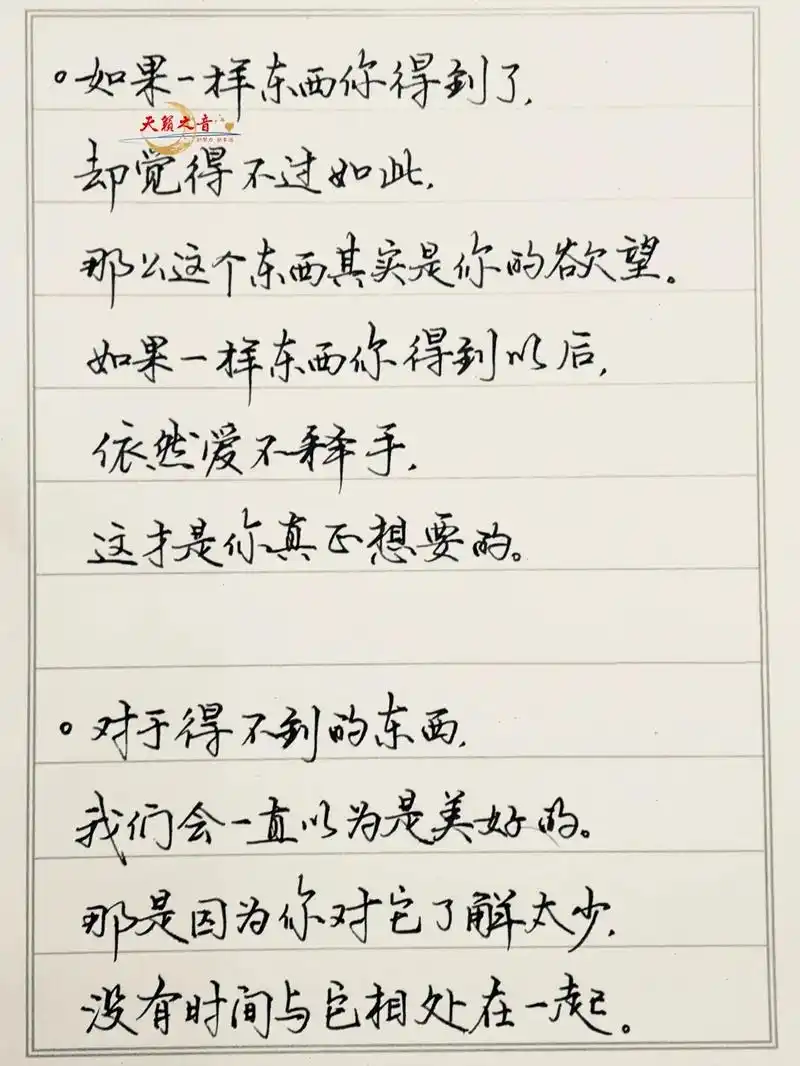 。如果一样东西你得到了,
天籁之音
却觉得不过如此,
那么这个东西其实是你的欲望。
如果一样东西你得到以后,
依然爱不释手,
这才是你真正想要的。
。对于得不到的东西,
我们会一直以为是美好的。
那是因为你对它了解太少,
没有时间与它相处在一起。